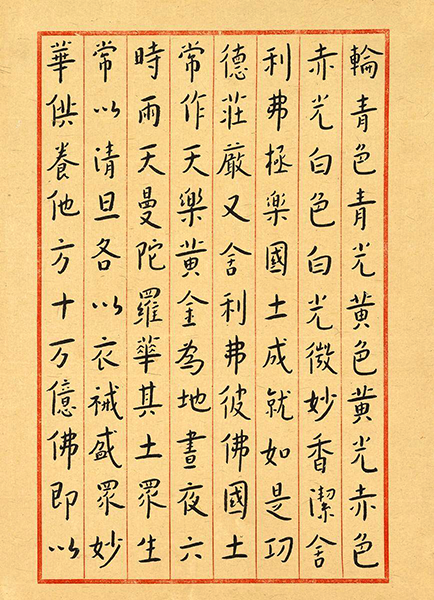 輪青色青光黄色黄光赤色
赤光白色白光微妙香潔舍
利弗極楽國土成就如是功
德莊嚴又舍利弗彼佛國土
常作天樂黃金為地晝夜六
時雨天曼陀羅華其土眾生
常以清旦各以衣祴盛眾妙
華供養他方十万億佛即以